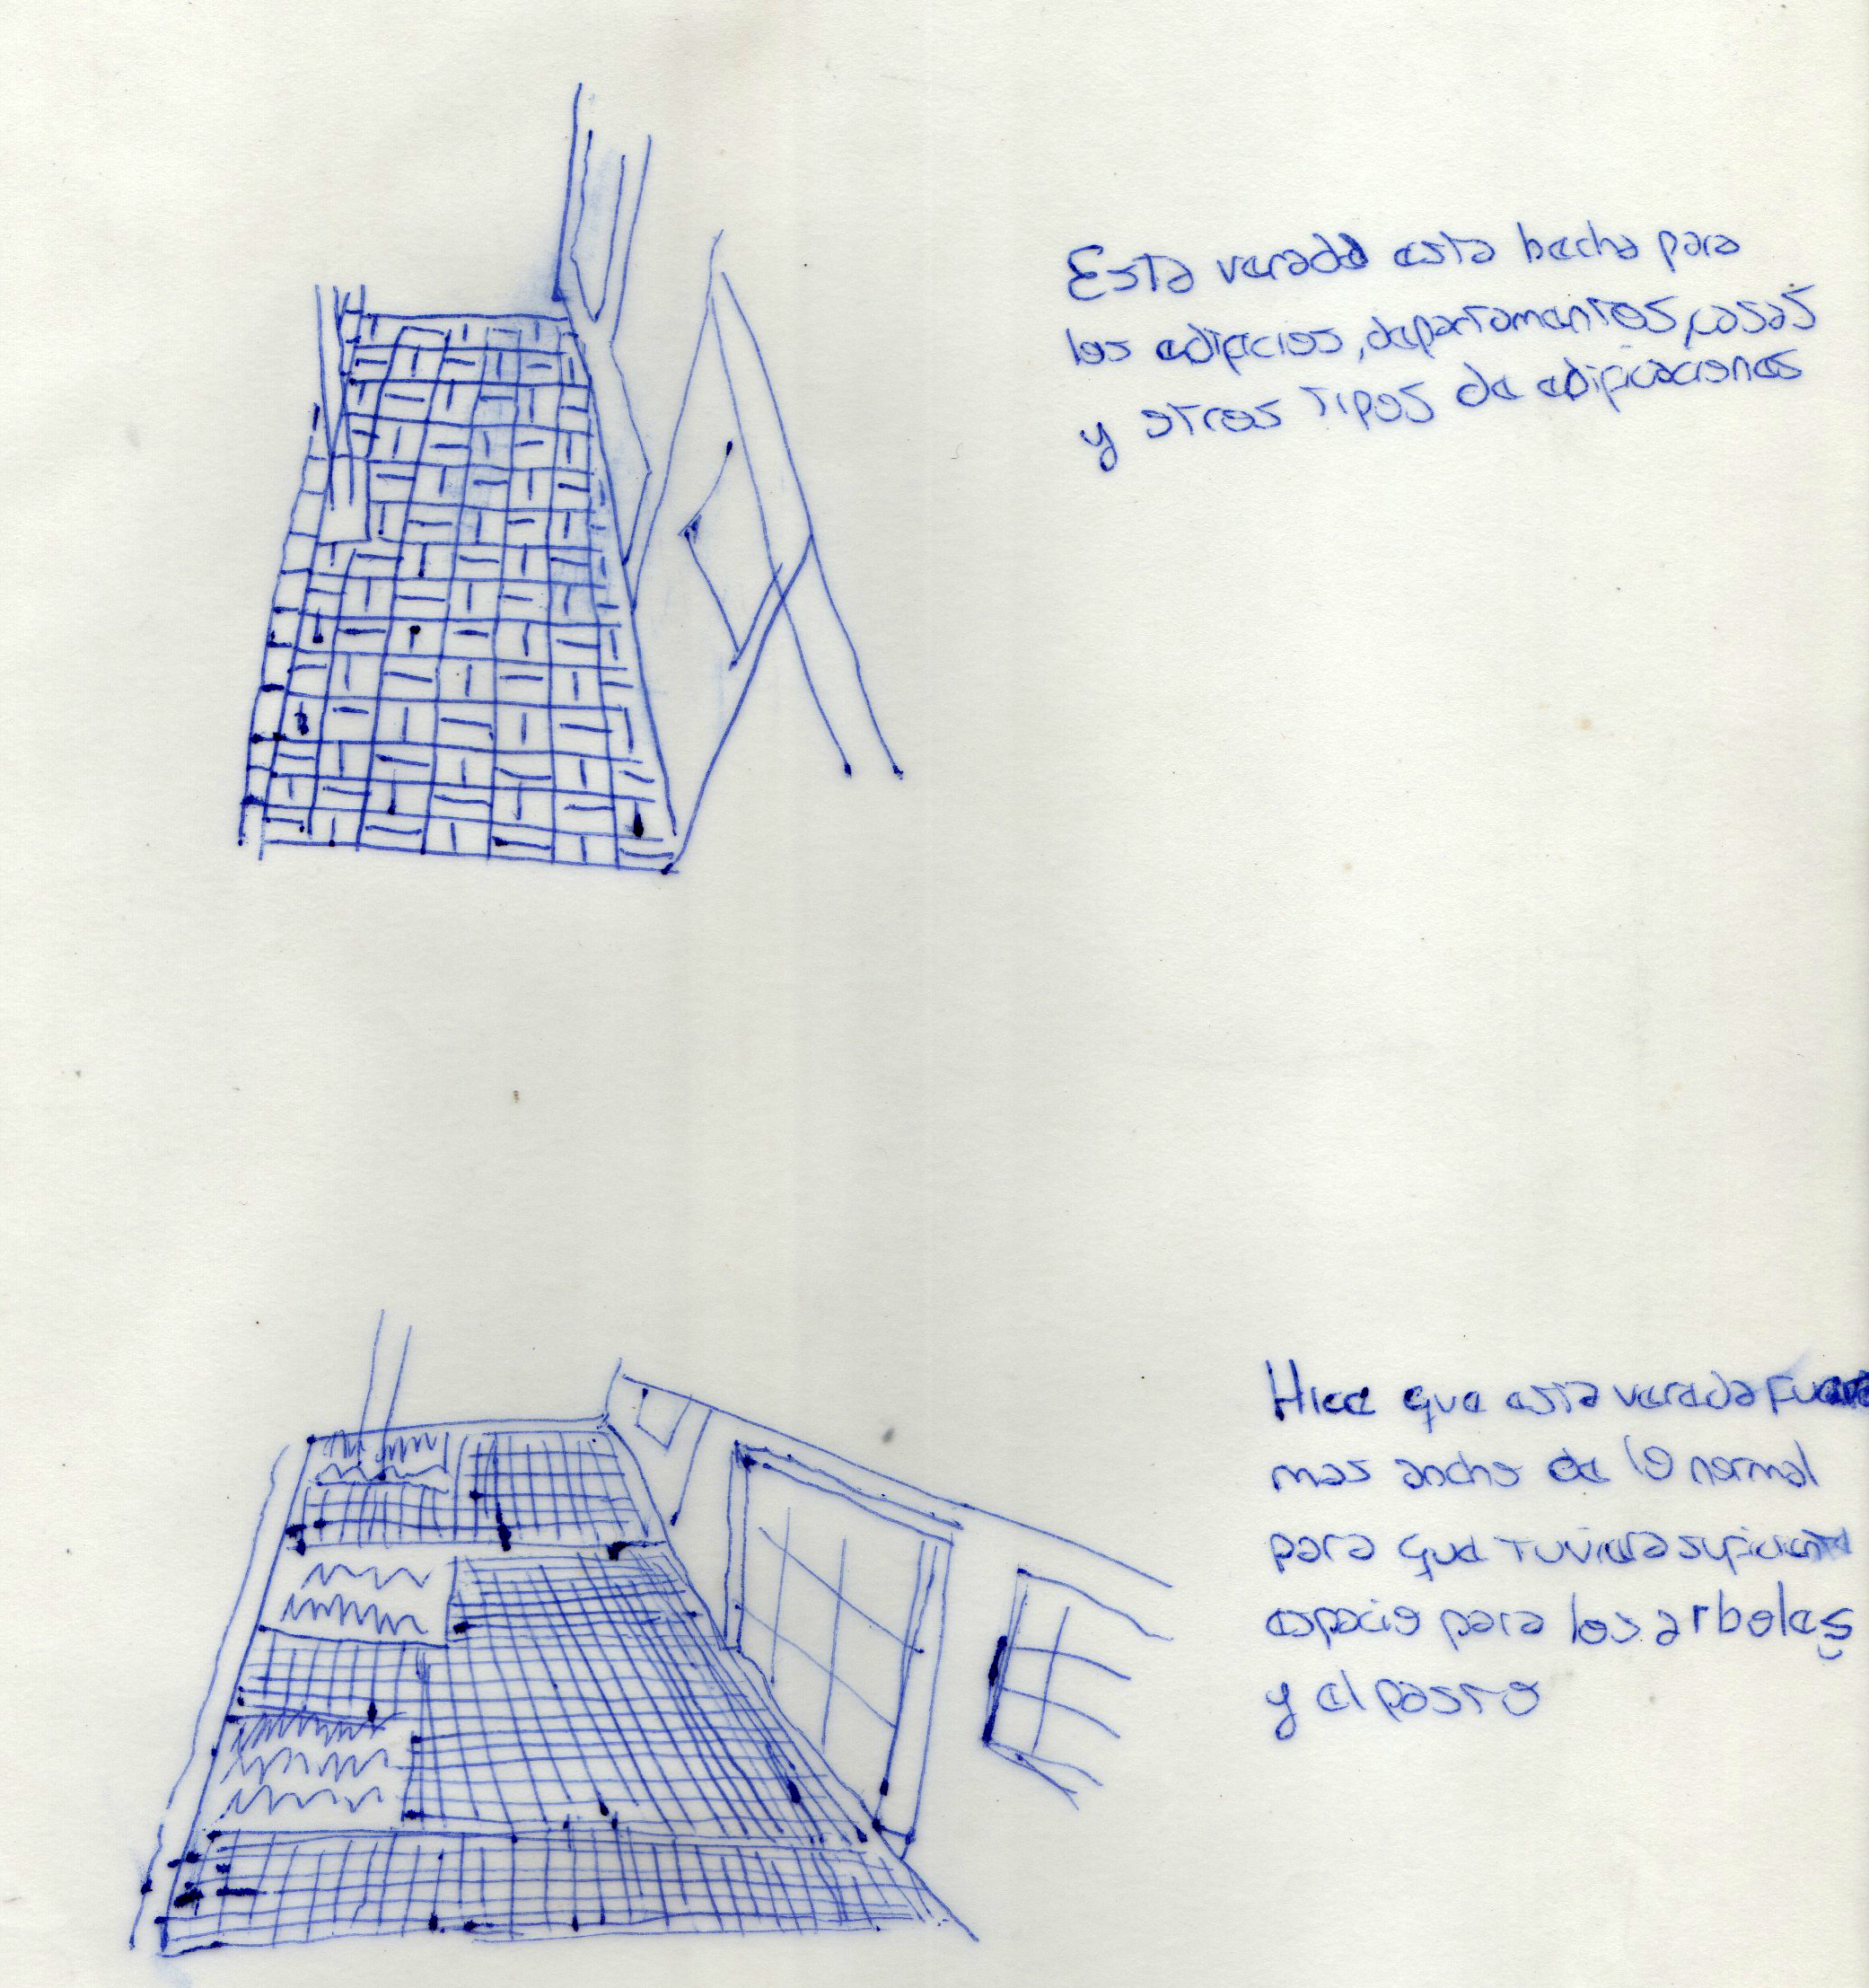 Esta vereda esta hecha para
los edificios, departamentos, casas
y otros tipos de edificaciones
Hice que esta vereda fuera
mas ancho de lo normal
para que tuviera suficiente
espacio para los arboles
y el pasto